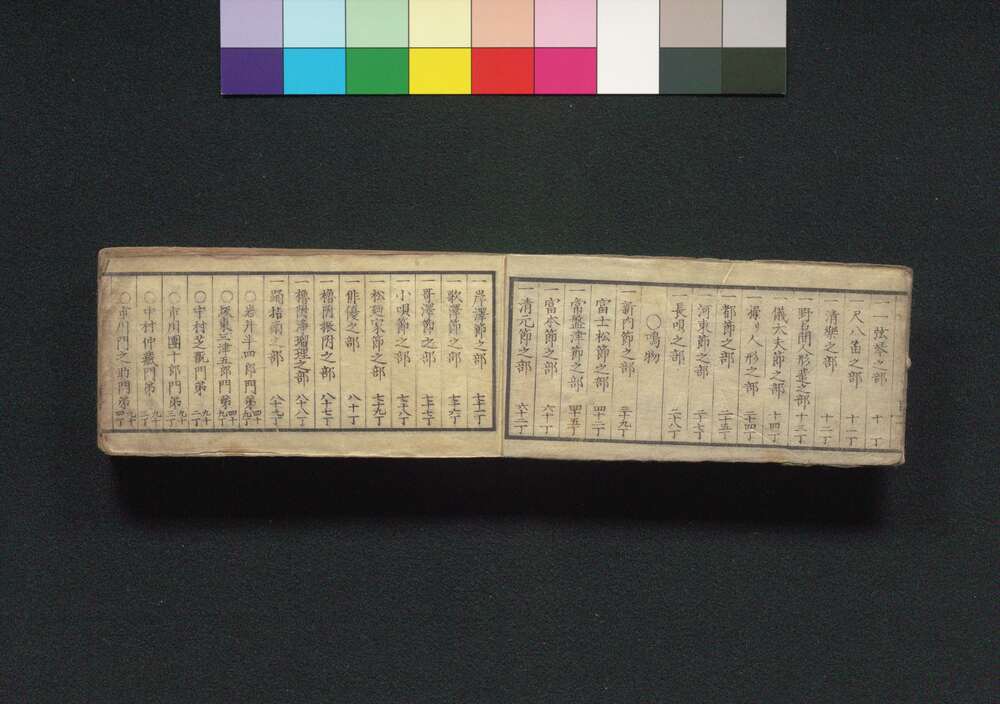 一一弦琴之部 十丁
一尺八笛之部 十一丁
一清樂之部 十二丁
一野呂間人形遣之部 十三丁
一儀太夫節之部 十四丁
一操リ人形之部 二十四丁
一都節之部 二十五丁
一河東節之部 二十七丁
一長唄之部 二十八丁
〇鳴物
一新内節之部 三十九丁
一富士松節之部 四十二丁
一常盤津節之部 四十五丁
一富本節之部 六十丁
一清元節之部 六十二丁
一岸澤節之部 七十一丁
一歌澤節之部 七十六丁
一哥澤節之部 七十七丁
一小唄節之部 七十八丁
一松廼家節之部 七十九丁
一俳優之部 八十丁
一櫓圍振附之部 八十七丁
一櫓圍淨瑠理之部 八十八丁
一踊指南之部 八十九丁
〇岩井半四郎門弟 九十四丁
〇坂東三津五郎門弟 九十四丁
〇中村芝翫門弟 九十二丁
〇市川團十郎門弟 九十三丁
〇中村仲藏門弟 九十二丁
〇市川門之助門弟 九十四丁